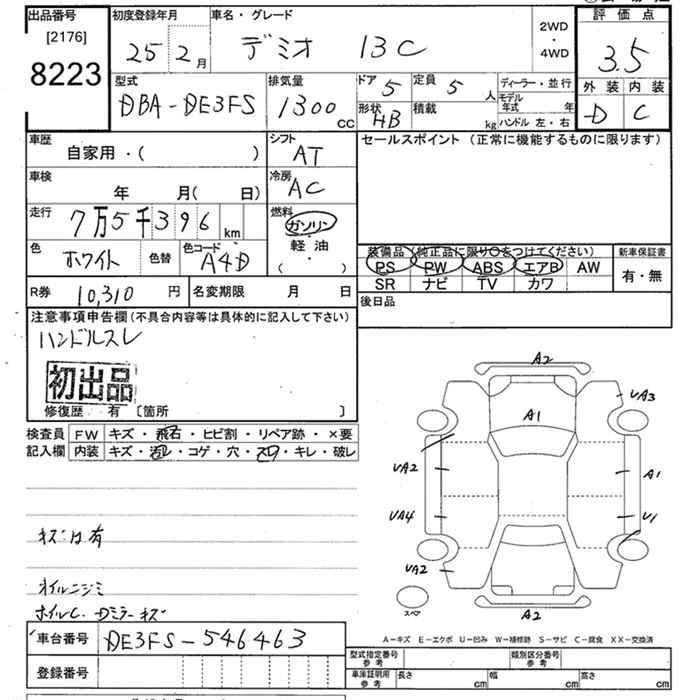 出品番号 初度登録年月 車名・グレード 2WD・4WD 評価点
[2176]
8223
25 2月 デミオ 13C 3.5
型式 排気量 ドア 5 定員 5人 ディーラー・並行 外装 内装
DBA-DE3FS 1300cc 形状 HB 積載 kg モデル年式 年 D C
ハンドル 左・右
車歴 シフト セールスポイント (正常に機能するものに限ります)
自家用・( ) AT
車検 冷房
年 月( 日) AC
走行 燃料
7万5千396km ガソリン
軽油
( ・ )
色 ホワイト 色替 色コード A4D
装備品(純正品に限り○をつけてください) 新車保証書
PS PW ABS エアB AW 有・無
SR ナビ TV カワ
R券 10,310円 名変期限 月 日
後日品
注意事項申告欄(不具合内容等は具体的に記入して下さい)
ハンドルスレ
初出品
修復歴 有 [箇所 ]
検査員 FW キズ・飛石・ヒビ割・リペア跡・×要
記入欄 内装 キズ・汚レ・コゲ・穴・スレ・キレ・破レ
A2
UA3
A1
UA2
A1
UA4
U1
UA2
A2
スペア
キズ口有
オイルニジミ
ホイルC. Dミラーキズ
A-キズ E-エクボ U-凹み W-補修跡 S-サビ C-腐食 XX-交換済
車台番号 DE3FS-546463
登録番号
型式指定番号 参考 類別区分番号 参考
車庫証明用 参考 長さ cm 幅 cm 高さ cm